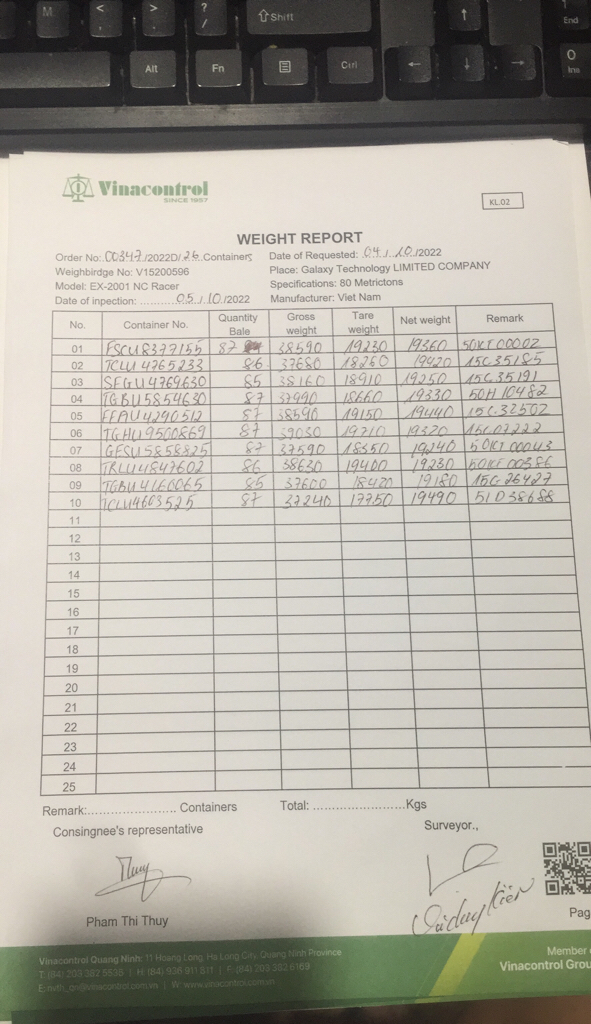 M
<
,
>
.
?
/
Shift
End
Alt
Fn
Ctrl
0
Ins
Vinacontrol
SINCE 1957
KL.02
WEIGHT REPORT
Order No: 00347/2022D/26 Containers Date of Requested: 04/10/2022
Weighbirdge No: V15200596 Place: Galaxy Technology LIMITED COMPANY
Model: EX-2001 NC Racer Specifications: 80 Metrictons
Date of inpection: ..........05/10/2022 Manufacturer: Viet Nam
No. Container No. Quantity Bale Gross weight Tare weight Net weight Remark
01 FSCU8377155 87 38590 19230 19360 50KT00002
02 TCLU4765233 86 37680 18260 19420 15C35185
03 SEGU4769630 85 38160 18910 19250 15C35191
04 TGBU5854630 87 37990 18660 19330 50H10482
05 FFAU4290512 87 38590 19150 19440 15C32502
06 TGHU9500869 87 39030 19710 19320 15C02222
07 GESU5858825 87 37590 18350 19240 50KT00043
08 TRLU4847602 86 38630 19400 19230 50KF00386
09 TGBU4160065 85 37600 18420 19180 15C26427
10 TCLU4603525 87 37240 17750 19490 51D38688
11
12
13
14
15
16
17
18
19
20
21
22
23
24
25
Remark:........................ Containers Total: ........................Kgs
Consingnee's representative Surveyor.,
Thuy
Vũ duy Kiên
Pham Thi Thuy
Pag
Vinacontrol Quang Ninh: 11 Hoang Long, Ha Long City, Quang Ninh Province
T: (84) 203 382 5536 | H: (84) 936 911 811 | F: (84) 203 382 6169
E: nvth_qn@vinacontrol.com.vn | W: www.vinacontrol.com.vn
Member
Vinacontrol Grou